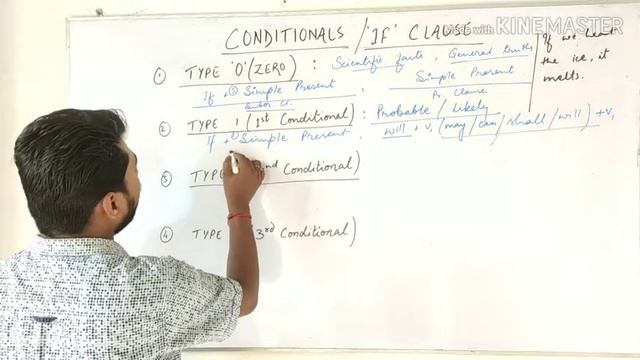 Made with KINEMASTER
CONDITIONALS / 'IF' CLAUSE
① TYPE 'O' (ZERO) : Scientific facts, General truths
If + ① Simple Present, Simple Present
Subor Cl. Pr. Clause
If we heat
the ice, it
melts.
② TYPE 1 (1st Conditional) : Probable / Likely
If + ① Simple Present, will + V₁ (may/can/shall/will) + V₁
③ TYPE nd Conditional)
④ TYPE 3rd Conditional)